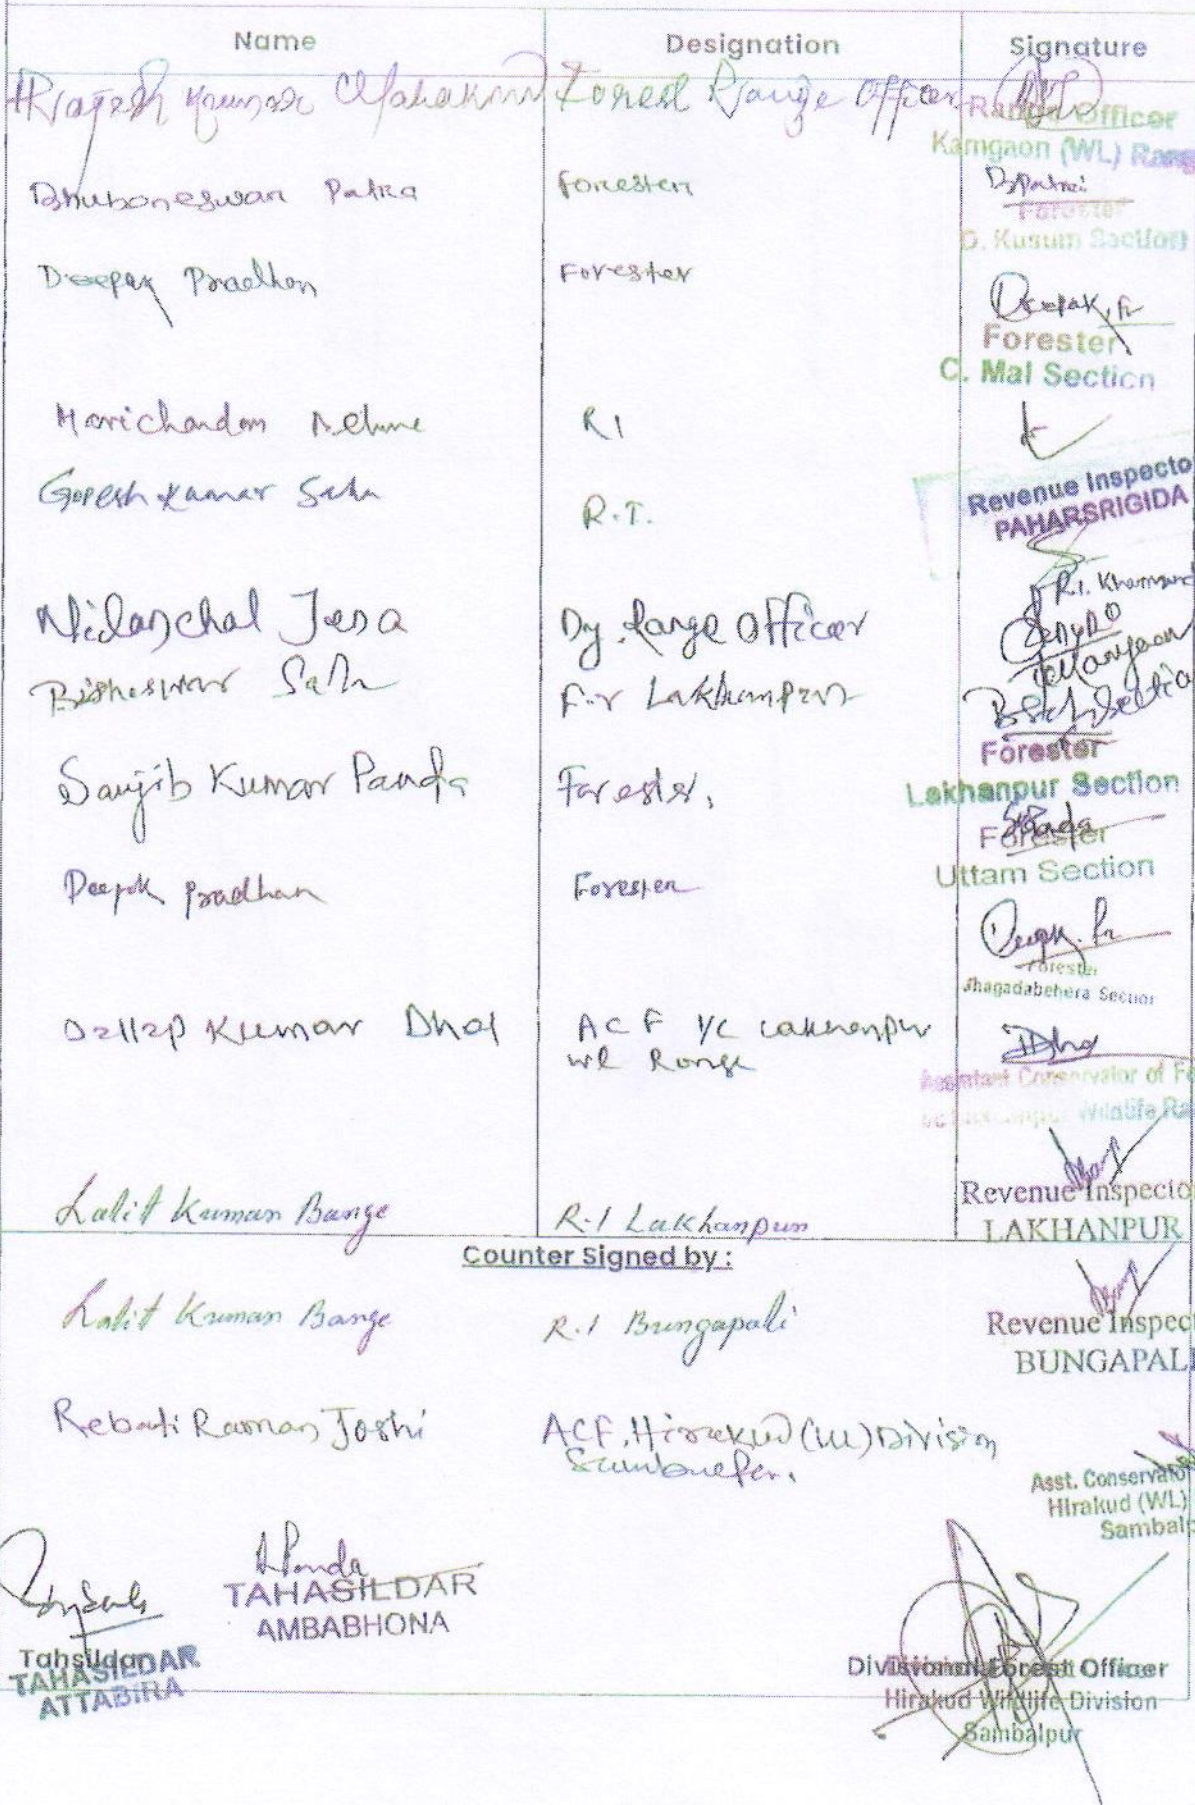 Name Designation Signature
Rajesh Kumar Mahakund Forest Range Officer
Range Officer
Kamgaon (WL) Rang
Bhuboneswar Patra Forester
Forester
D. Kusum Section
Deepak Pradhan Forester
Deepak, Pr
Forester
C. Mal Section
Harichandan RI
Revenue Inspecto
PAHARSRIGIDA
Gopesh Kumar Sahu R.I.
R.I. Kham
Nilanchal Jena Dy. Range Officer
Bisheswar Sahu Fr Lakhanpur
Forester
Lakhanpur Section
Sanjib Kumar Panda Forester,
Forester
Uttam Section
Deepak Pradhan Forester
Deepak. Pr
Forester
Jhagadabehera Section
Dillip Kumar Dhal ACF I/C Lakhanpur
WL Range
Assistant Conservator of Fo
Wildlife Ra
Lalit Kumar Bange R.I Lakhanpur
Revenue Inspecto
LAKHANPUR
Counter Signed by :
Lalit Kumar Bange R.I Bungapali
Revenue Inspec
BUNGAPAL
Rebati Raman Joshi ACF, Hirakud (WL) Division
Sambalpur.
Asst. Conservato
Hirakud (WL)
Sambalp
APanda
TAHASILDAR
AMBABHONA
Tahsildar
TAHASILDAR
ATTABIRA
Divisional Forest Officer
Hirakud Wildlife Division
Sambalpur